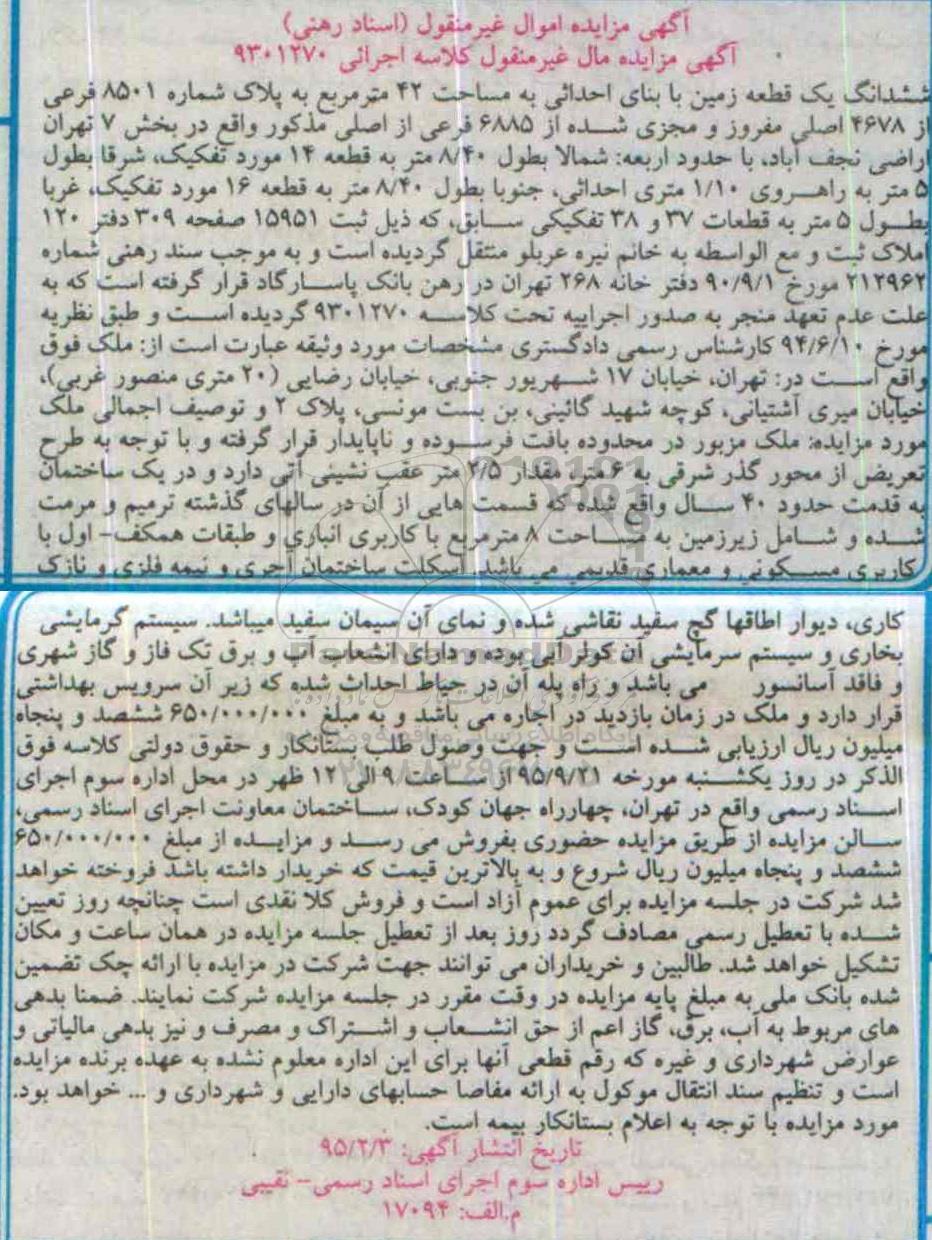 آگهی مزایده اموال غیرمنقول (اسناد رهنی)
آگهی مزایده مال غیرمنقول کلاسه اجرائی ۹۳۰۱۲۷۰
ششدانگ یک قطعه زمین با بنای احداثی به مساحت ۴۲ مترمربع به پلاک شماره ۸۵۰۱ فرعی
از ۴۶۷۸ اصلی مفروز و مجزی شده از ۶۸۸۵ فرعی از اصلی مذکور واقع در بخش ۷ تهران
اراضی نجف آباد، با حدود اربعه: شمالا بطول ۸/۴۰ متر به قطعه ۱۴ مورد تفکیک، شرقا بطول
۵ متر به راهروی ۱/۱۰ متری احداثی، جنوبا بطول ۸/۴۰ متر به قطعه ۱۶ مورد تفکیک، غربا
بطول ۵ متر به قطعات ۳۷ و ۳۸ تفکیکی سابق، که ذیل ثبت ۱۵۹۵۱ صفحه ۳۰۹ دفتر ۱۲۰
املاک ثبت و مع الواسطه به خانم نیره عربلو منتقل گردیده است و به موجب سند رهنی شماره
۲۱۲۹۶۲ مورخ ۹۰/۹/۱ دفتر خانه ۲۶۸ تهران در رهن بانک پاسارگاد قرار گرفته است که به
علت عدم تعهد منجر به صدور اجراییه تحت کلاسه ۹۳۰۱۲۷۰ گردیده است و طبق نظریه
مورخ ۹۴/۶/۱۰ کارشناس رسمی دادگستری مشخصات مورد وثیقه عبارت است از: ملک فوق
واقع است در: تهران، خیابان ۱۷ شهریور جنوبی، خیابان رضایی (۲۰ متری منصور غربی)،
خیابان میری آشتیانی، کوچه شهید گائینی، بن بست مونسی، پلاک ۲ و توصیف اجمالی ملک
مورد مزایده: ملک مزبور در محدوده بافت فرسوده و ناپایدار قرار گرفته و با توجه به طرح
تعریض از محور گذر شرقی به ۶ متر، مقدار ۲/۵ متر عقب نشینی آتی دارد و در یک ساختمان
به قدمت حدود ۴۰ سال واقع شده که قسمت هایی از آن در سالهای گذشته ترمیم و مرمت
شده و شامل زیرزمین به مساحت ۸ مترمربع با کاربری انباری و طبقات همکف- اول با
کاربری مسکونی و معماری قدیمی می باشد. اسکلت ساختمان آجری و نیمه فلزی و نازک
کاری، دیوار اطاقها گچ سفید نقاشی شده و نمای آن سیمان سفید میباشد. سیستم گرمایشی
بخاری و سیستم سرمایشی آن کولر آبی بوده و دارای انشعاب آب و برق تک فاز و گاز شهری
و فاقد آسانسور می باشد و راه پله آن در حیاط احداث شده که زیر آن سرویس بهداشتی
قرار دارد و ملک در زمان بازدید در اجاره می باشد و به مبلغ ۶۵۰/۰۰۰/۰۰۰ ششصد و پنجاه
میلیون ریال ارزیابی شده است و جهت وصول طلب بستانکار و حقوق دولتی کلاسه فوق
الذکر در روز یکشنبه مورخه ۹۵/۹/۲۱ از ساعت ۹ الی ۱۲ ظهر در محل اداره سوم اجرای
اسناد رسمی واقع در تهران، چهارراه جهان کودک، ساختمان معاونت اجرای اسناد رسمی،
سالن مزایده از طریق مزایده حضوری بفروش می رسد و مزایده از مبلغ ۶۵۰/۰۰۰/۰۰۰
ششصد و پنجاه میلیون ریال شروع و به بالاترین قیمت که خریدار داشته باشد فروخته خواهد
شد شرکت در جلسه مزایده برای عموم آزاد است و فروش کلا نقدی است چنانچه روز تعیین
شده با تعطیل رسمی مصادف گردد روز بعد از تعطیل جلسه مزایده در همان ساعت و مکان
تشکیل خواهد شد. طالبین و خریداران می توانند جهت شرکت در مزایده با ارائه چک تضمین
شده بانک ملی به مبلغ پایه مزایده در وقت مقرر در جلسه مزایده شرکت نمایند. ضمنا بدهی
های مربوط به آب، برق، گاز اعم از حق انشعاب و اشتراک و مصرف و نیز بدهی مالیاتی و
عوارض شهرداری و غیره که رقم قطعی آنها برای این اداره معلوم نشده به عهده برنده مزایده
است و تنظیم سند انتقال موکول به ارائه مفاصا حسابهای دارایی و شهرداری و ... خواهد بود.
مورد مزایده با توجه به اعلام بستانکار بیمه است.
تاریخ انتشار آگهی: ۹۵/۲/۳
رییس اداره سوم اجرای اسناد رسمی- نقیبی
م.الف: ۱۷۰۹۴